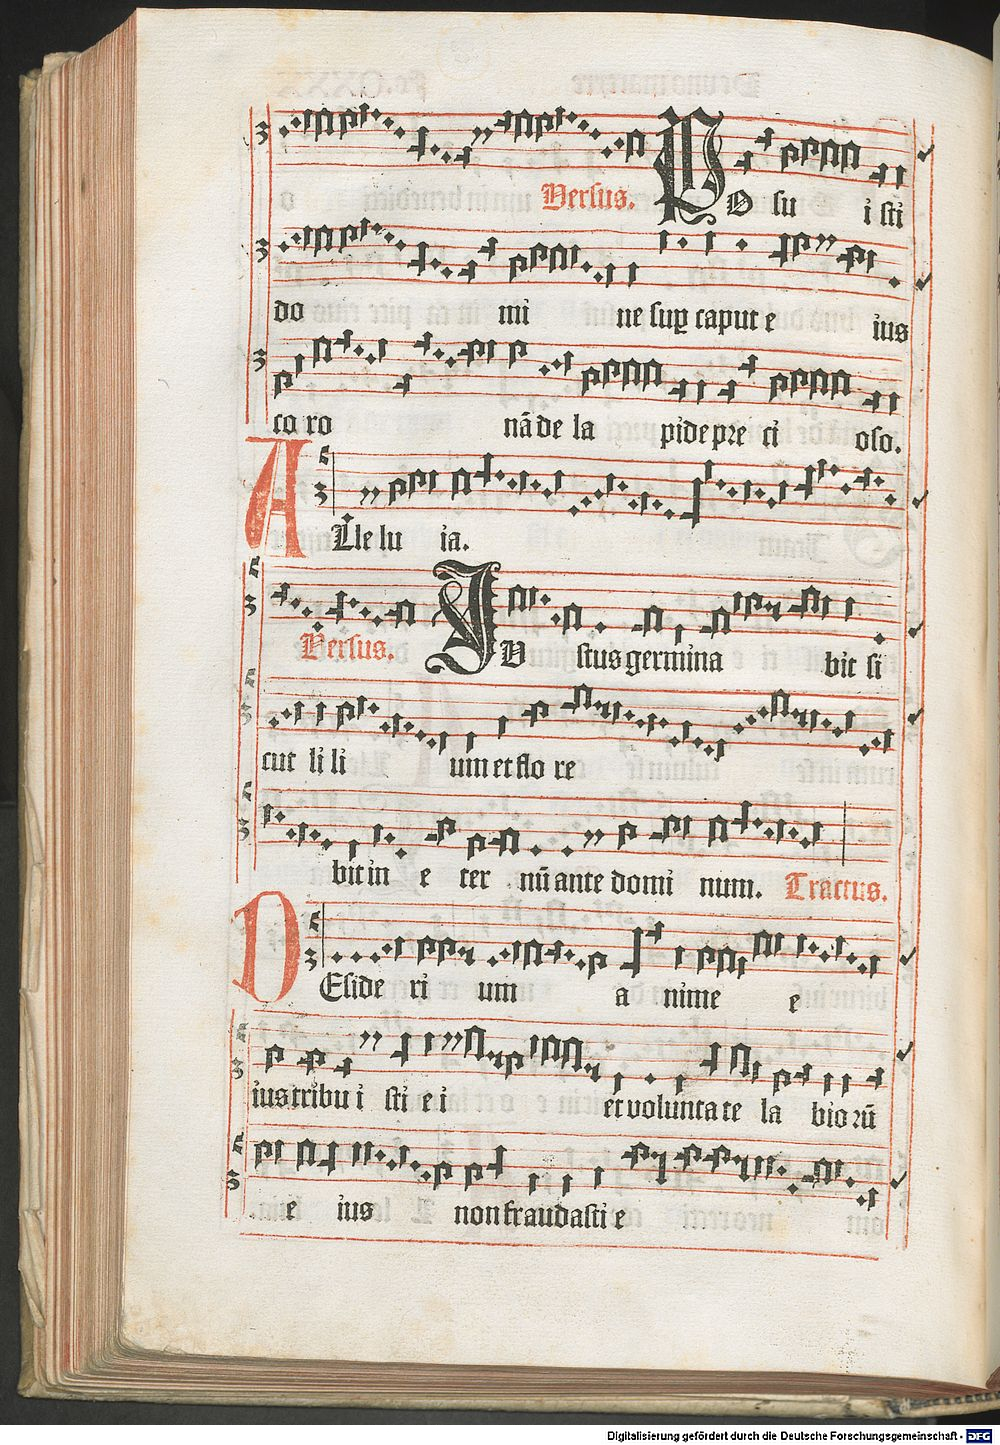 Versus. PO su i sti
do mi ne suꝑ caput e ius
co ro nā de la pide pre ci oso.
ALle lu ia.
Versus. IV stus germina bit si
cut li li um et flo re
bit in e ter nū ante domi num. Tractus.
DEside ri um a nime e
ius tribu i sti e i et volunta te la bioꝛū
e ius non fraudasti e
Digitalisierung gefördert durch die Deutsche Forschungsgemeinschaft - DFG